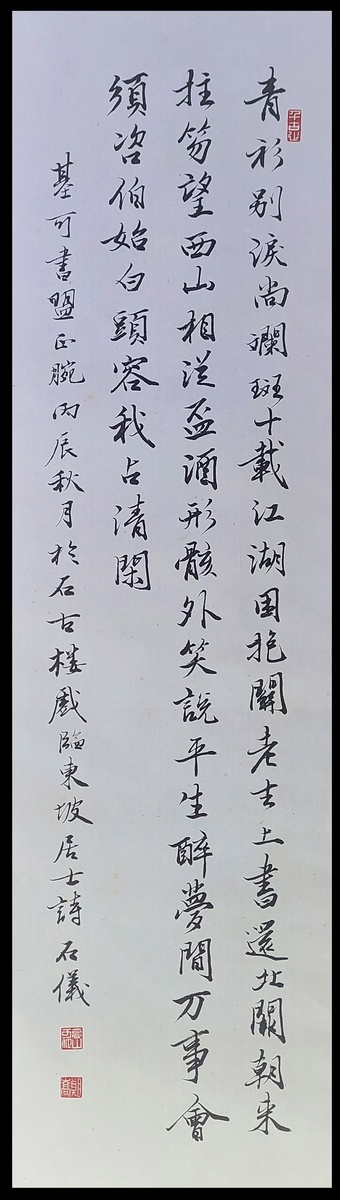 青衫別淚尚斕斑十載江湖困抱關老去上書還北闕朝来
拄笏望西山相從盃酒形骸外笑說平生醉夢間万事會
須咨伯始白頭容我占清閑
基可書盟正腕丙辰秋月於石古楼戲臨東坡居士詩石儀